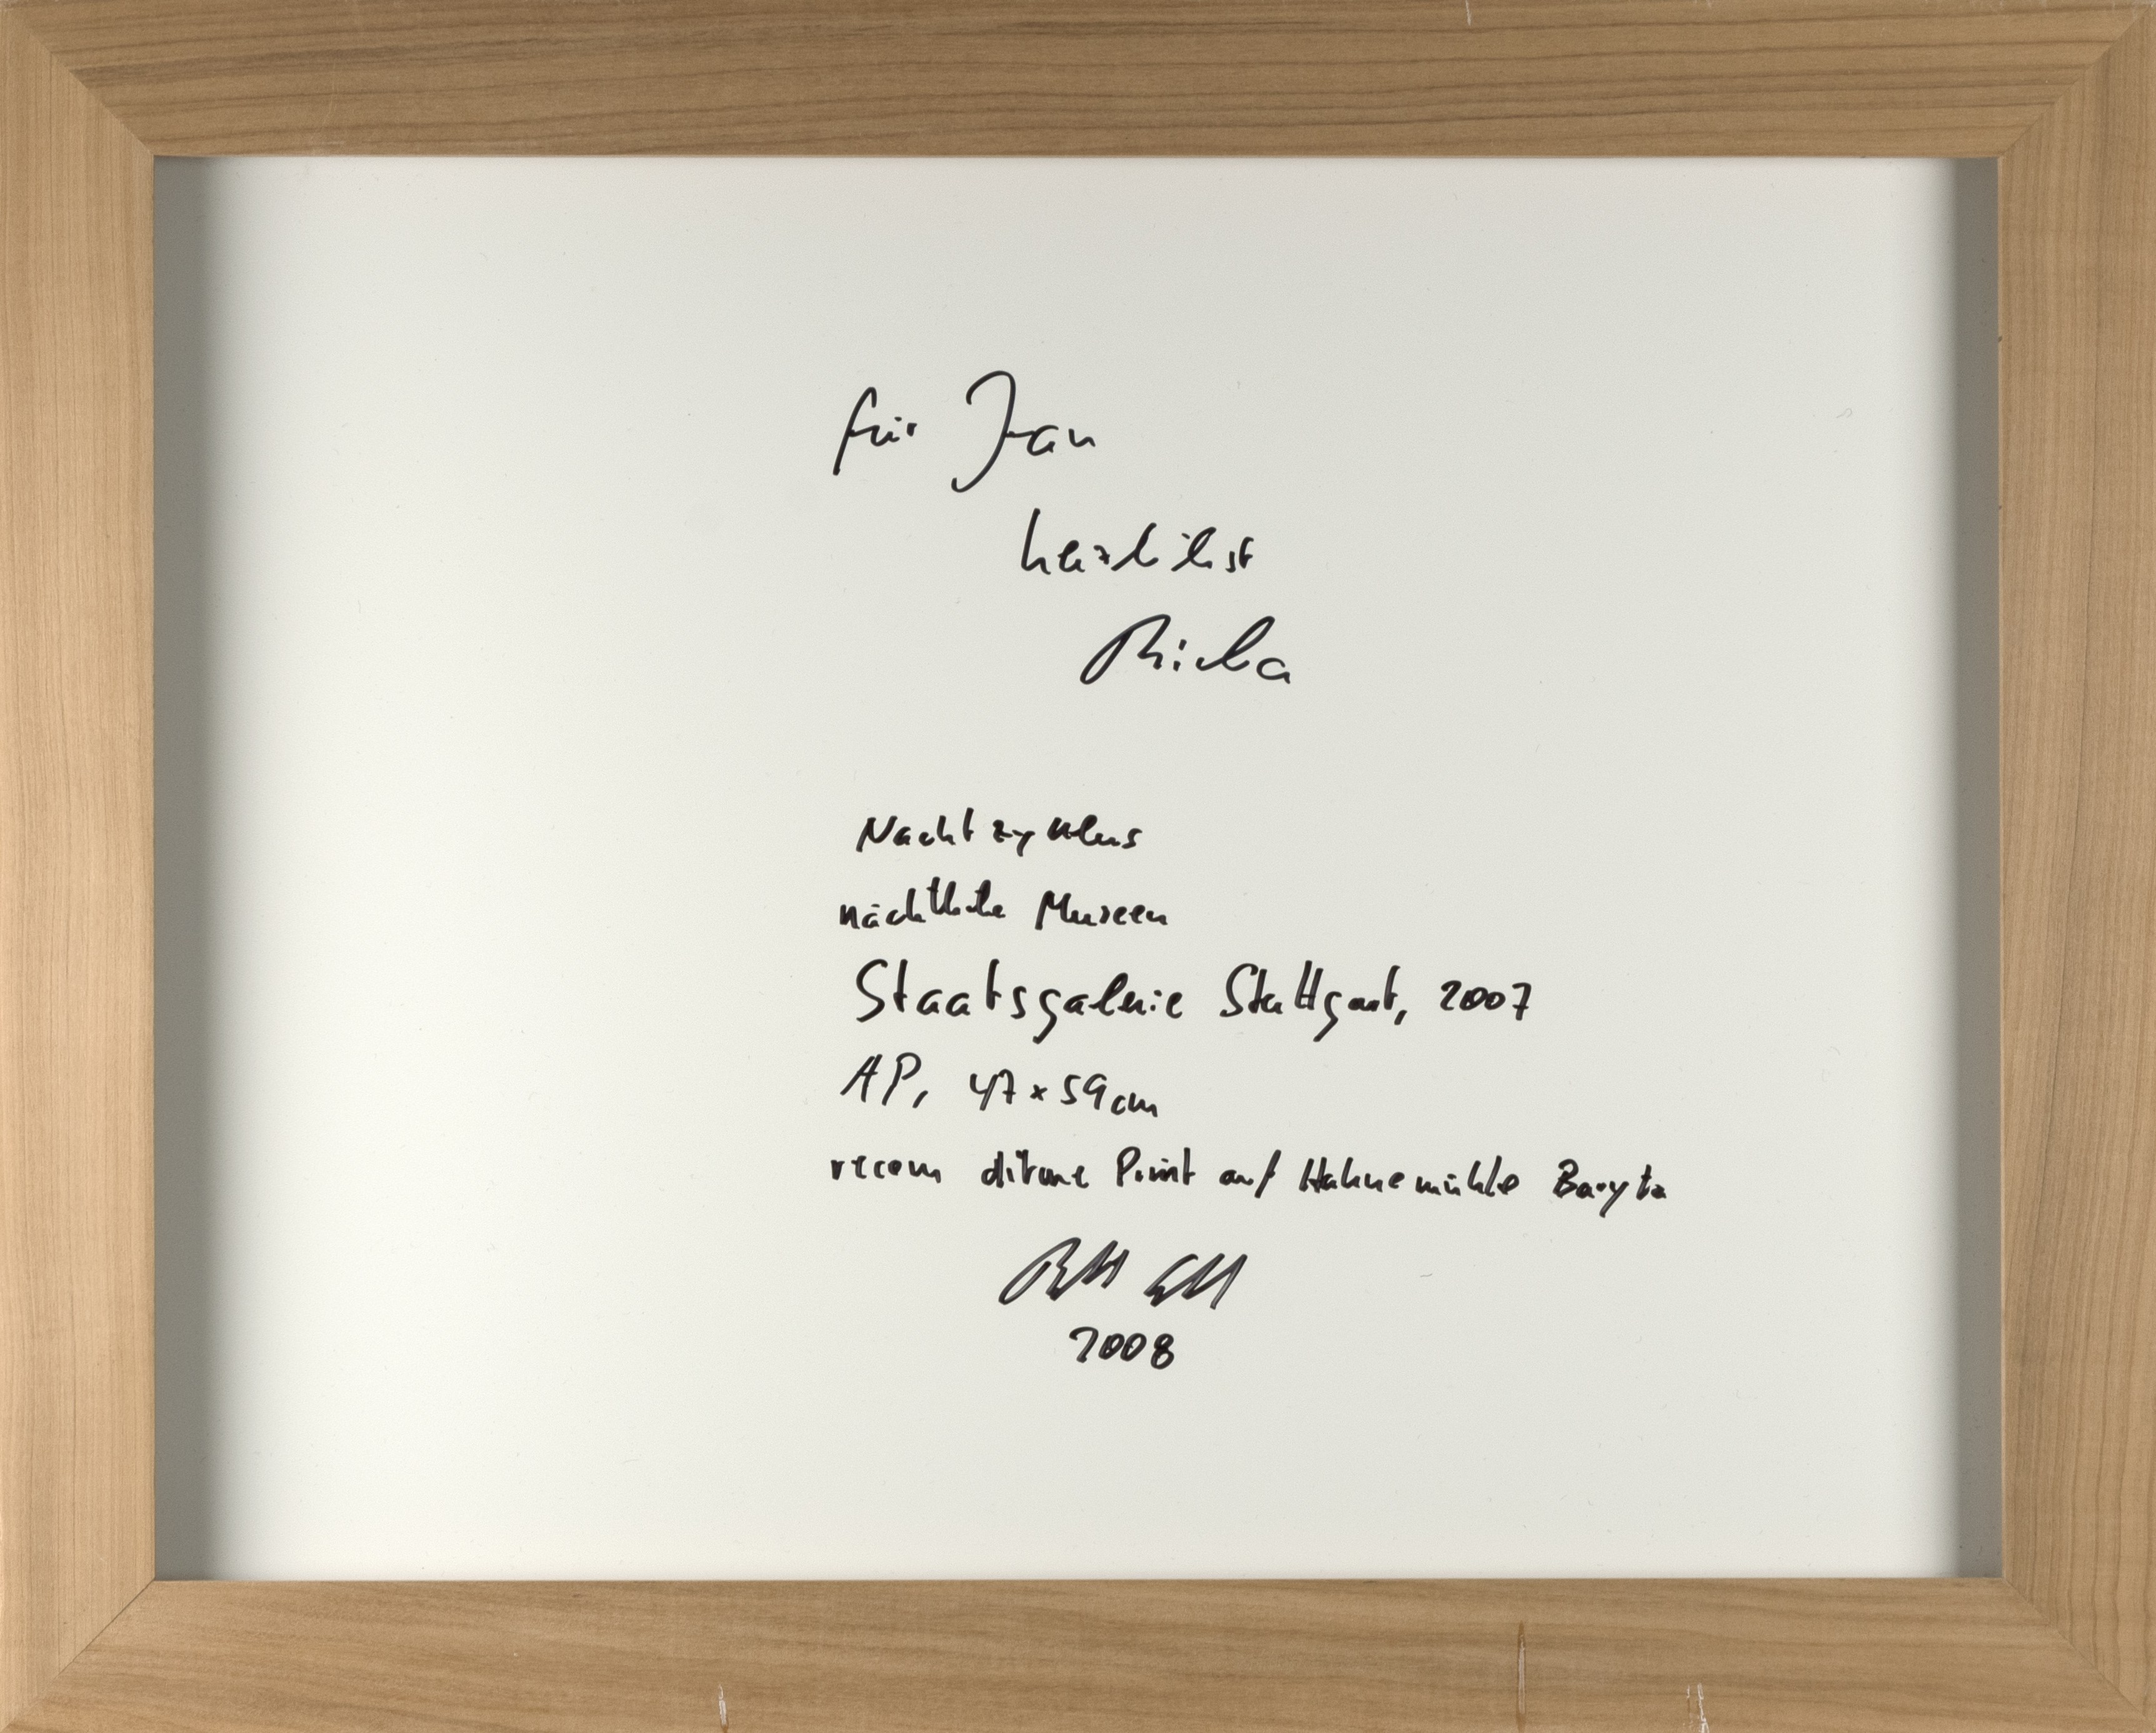 für Jan
herzlichst
Nachtzyklus
nächtliche Museen
Staatsgalerie Stuttgart, 2007
AP, 47 x 59 cm
Print auf Hahnemühle Baryta
2008